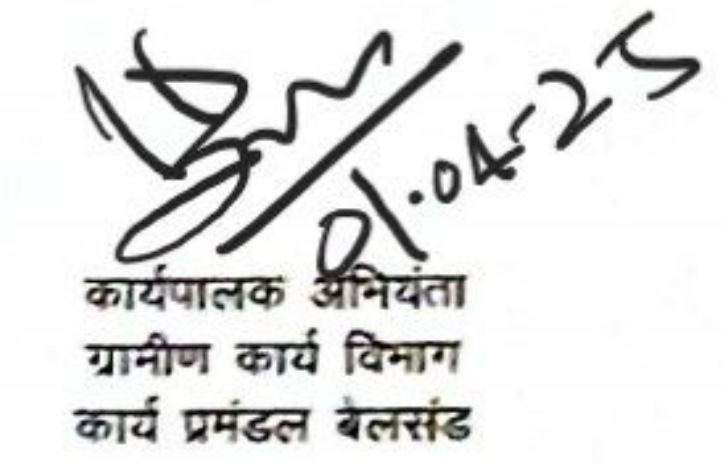 01.04.25
कार्यपालक अभियंता
ग्रामीण कार्य विभाग
कार्य प्रमंडल बेलसंड